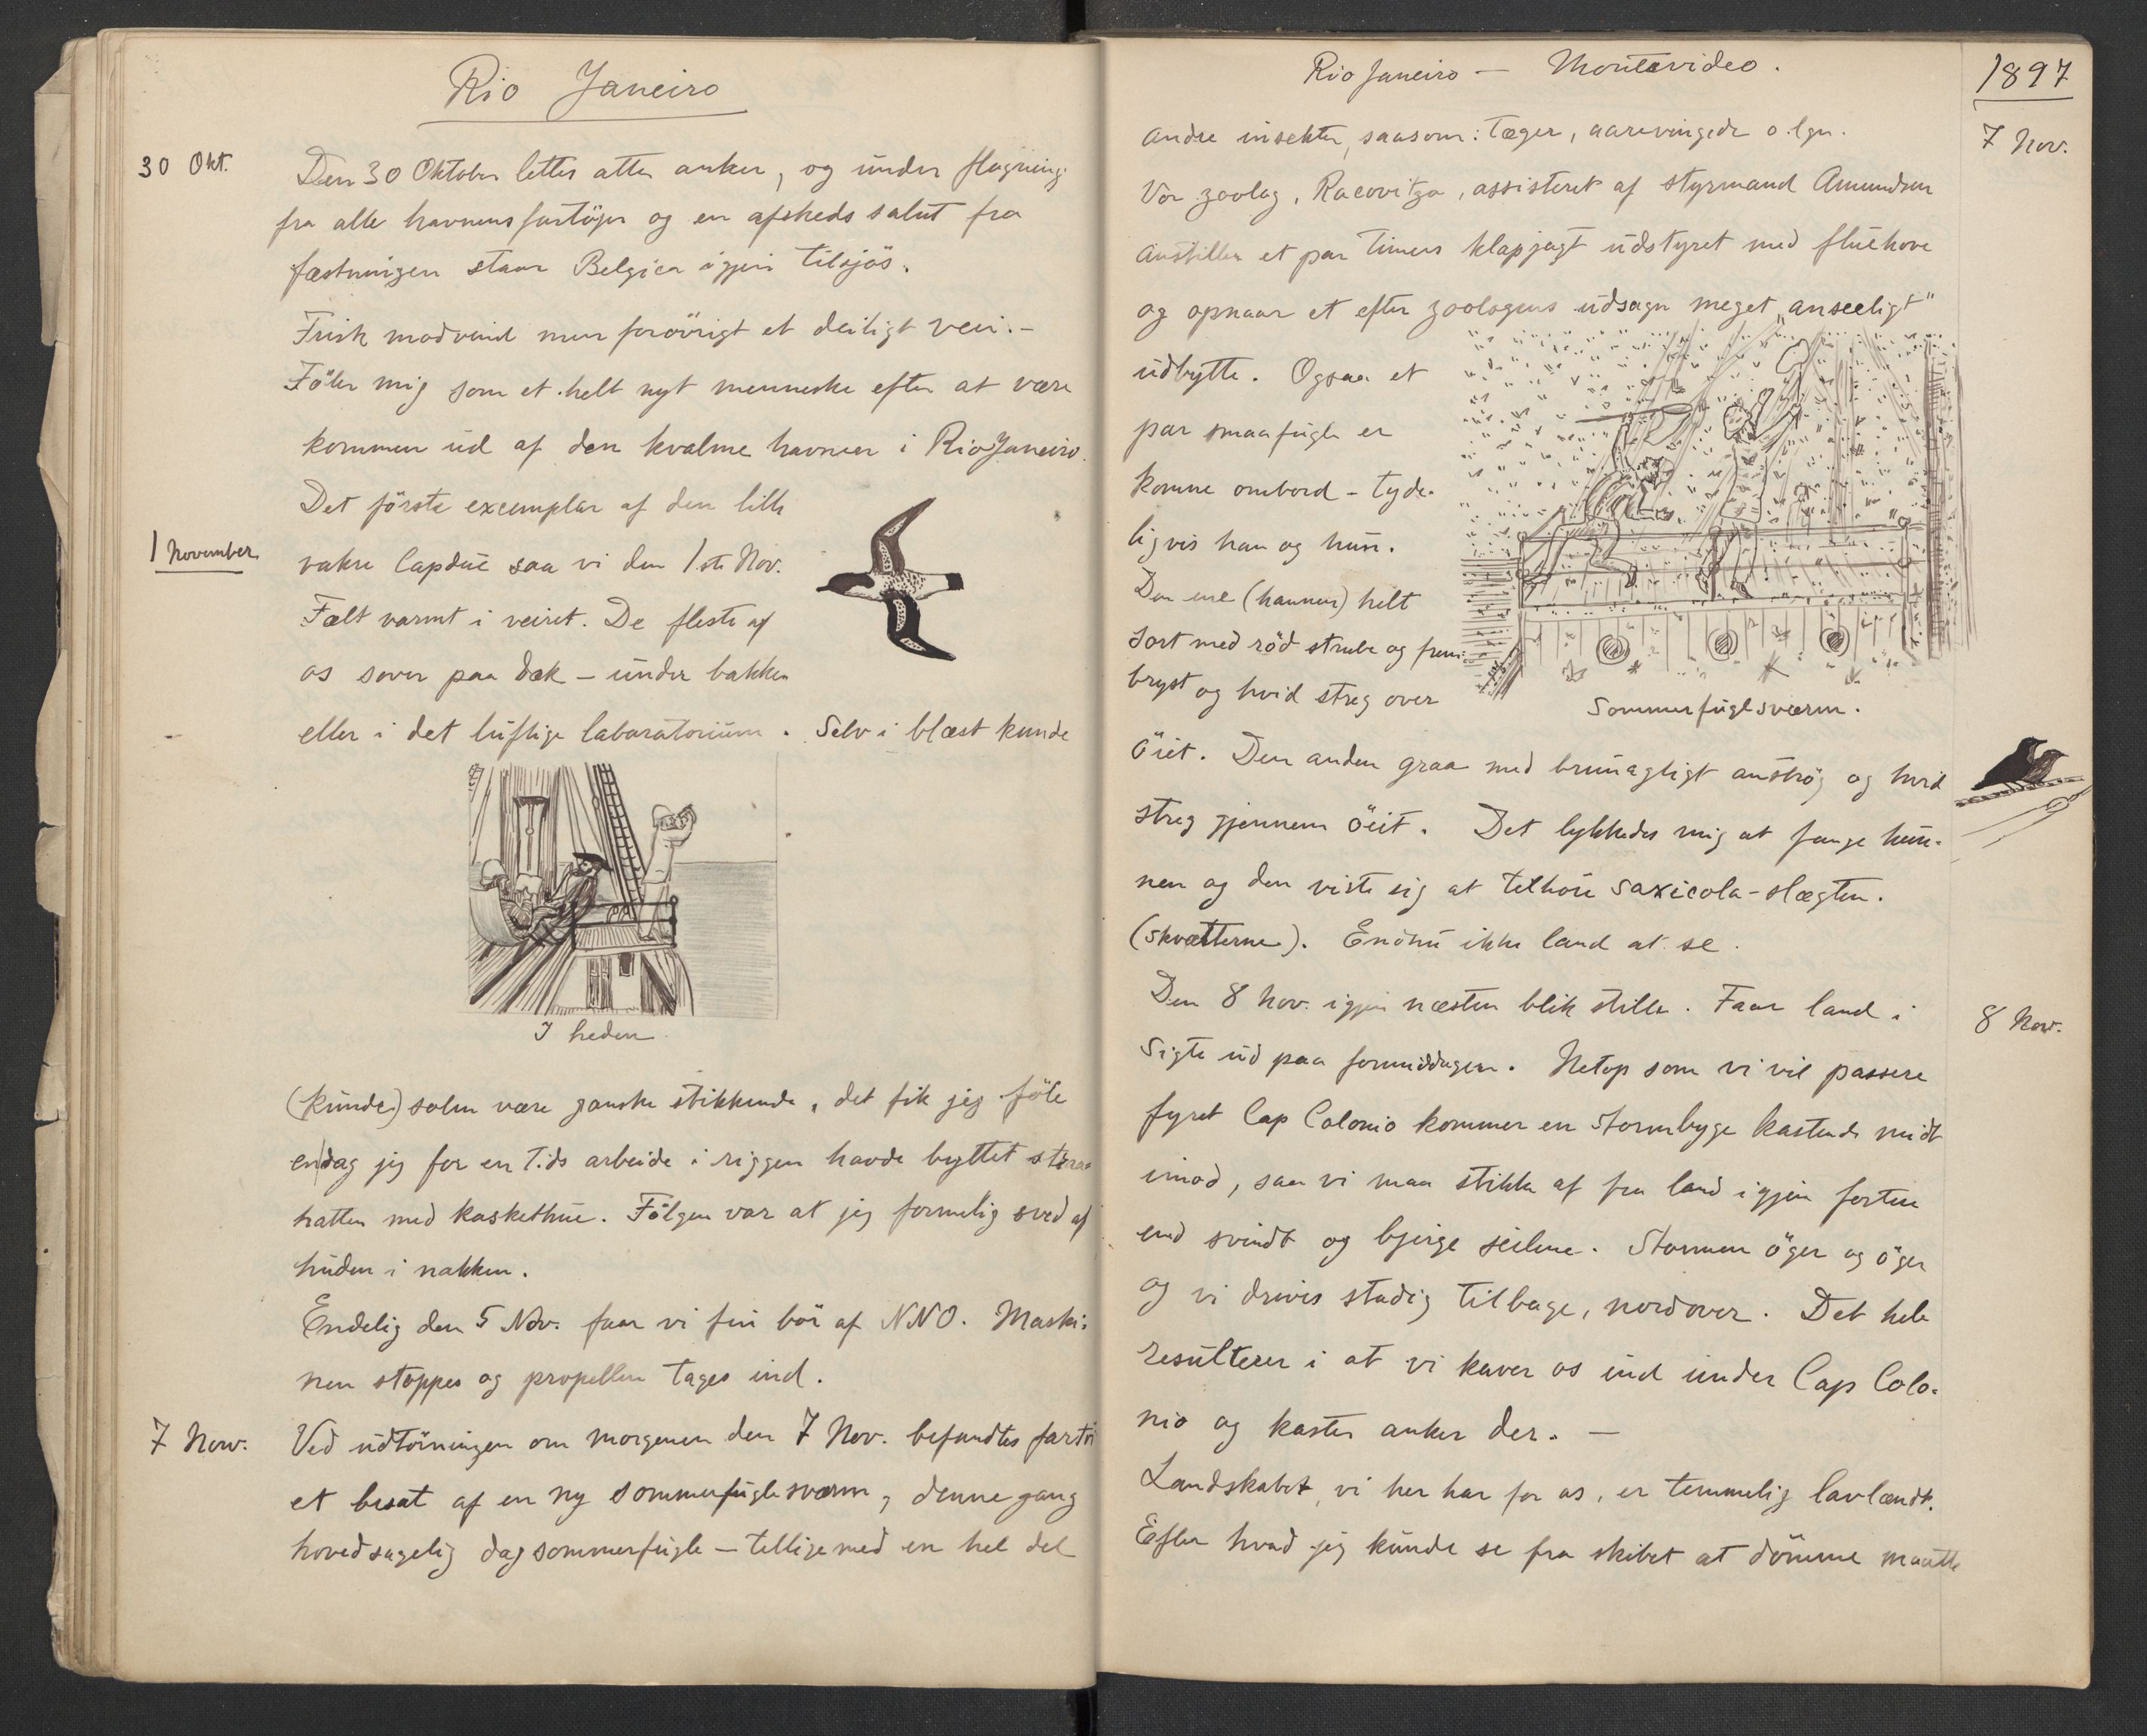 Rio Janeiro
30 Okt.
Den 30 Oktober lettes atter anker, og under flagning
fra alle havnens fartöjer og en afskeds salut fra
fæstningen staar Belgica igjen tilsjös.
Frisk modvind men forövrigt et deiligt veir. –
Föler mig som et helt nyt menneske efter at være
kommen ud af den kvalme havnen i Rio Janeiro.
Det förste exemplar af den lille
1 November
vakre Capdue saa vi den 1ste Nov.
Fælt varmt i veiret. De fleste af
os sover paa dæk – under bakken
eller i det luftige laboratorium. Selv i blæst kunde
I heden
(kunde) solen være ganske stikkende, det fik jeg föle
en dag jeg for en Tids arbeide i riggen havde byttet straa
hatten med kaskethue. Fölgen var at jeg formelig sved af
huden i nakken.
Endelig den 5 Nov. faar vi fin bör af NNO. Maski-
nen stoppes og propellen tages ind.
7 Nov.
Ved udtörningen om morgenen den 7 Nov. befandtes fartöi
et besat af en ny sommerfuglesværm, denne gang
hovedsagelig dagsommerfugle – tilligemed en hel del
Rio Janeiro – Montevideo.
1897
7 Nov.
andre insekter, saasom: Tæger, aarevingede o.lgn.
Vor zoolog, Racovitza, assisteret af styrmand Amundsen
anstiller et par timers klapjagt udstyret med fluehove
og opnaar et efter zoologens udsagn meget „anseeligt"
udbytte. Ogsaa et
par smaafugle er
komne ombord – tyde-
ligvis han og hun.
Den ene (hannen) helt
sort med röd strube og frem-
bryst og hvid streg over
Sommerfuglsværm.
öiet. Den anden graa med brunagtigt anströg og hvid
streg gjennem öiet. Det lykkedes mig at fange hun-
nen og den viste sig at tilhöre saxicola-slægten.
(skvætterne). Endnu ikke land at se.
8 Nov.
Den 8 Nov. igjen næsten blik stille. Faar land i
Sigte ud paa formiddagen. Netop som vi vil passere
fyret Cap Colonio kommer en stormbyge kastende midt
imod, saa vi maa stikke af fra land igjen fortere
end svindt og bjerge seilene. Stormen öger og öger
og vi drives stadig tilbage, nordover. Det hele
resulterer i at vi kaver os ind under Cap Colo-
nio og kaster anker der. –
Landskabet, vi her har for os, er temmelig lavlændt.
Efter hvad jeg kunde se fra skibet at dömme maatte